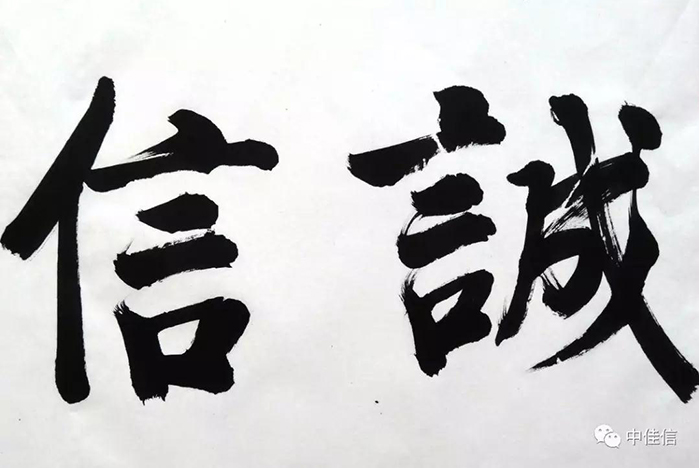 誠信
中佳信